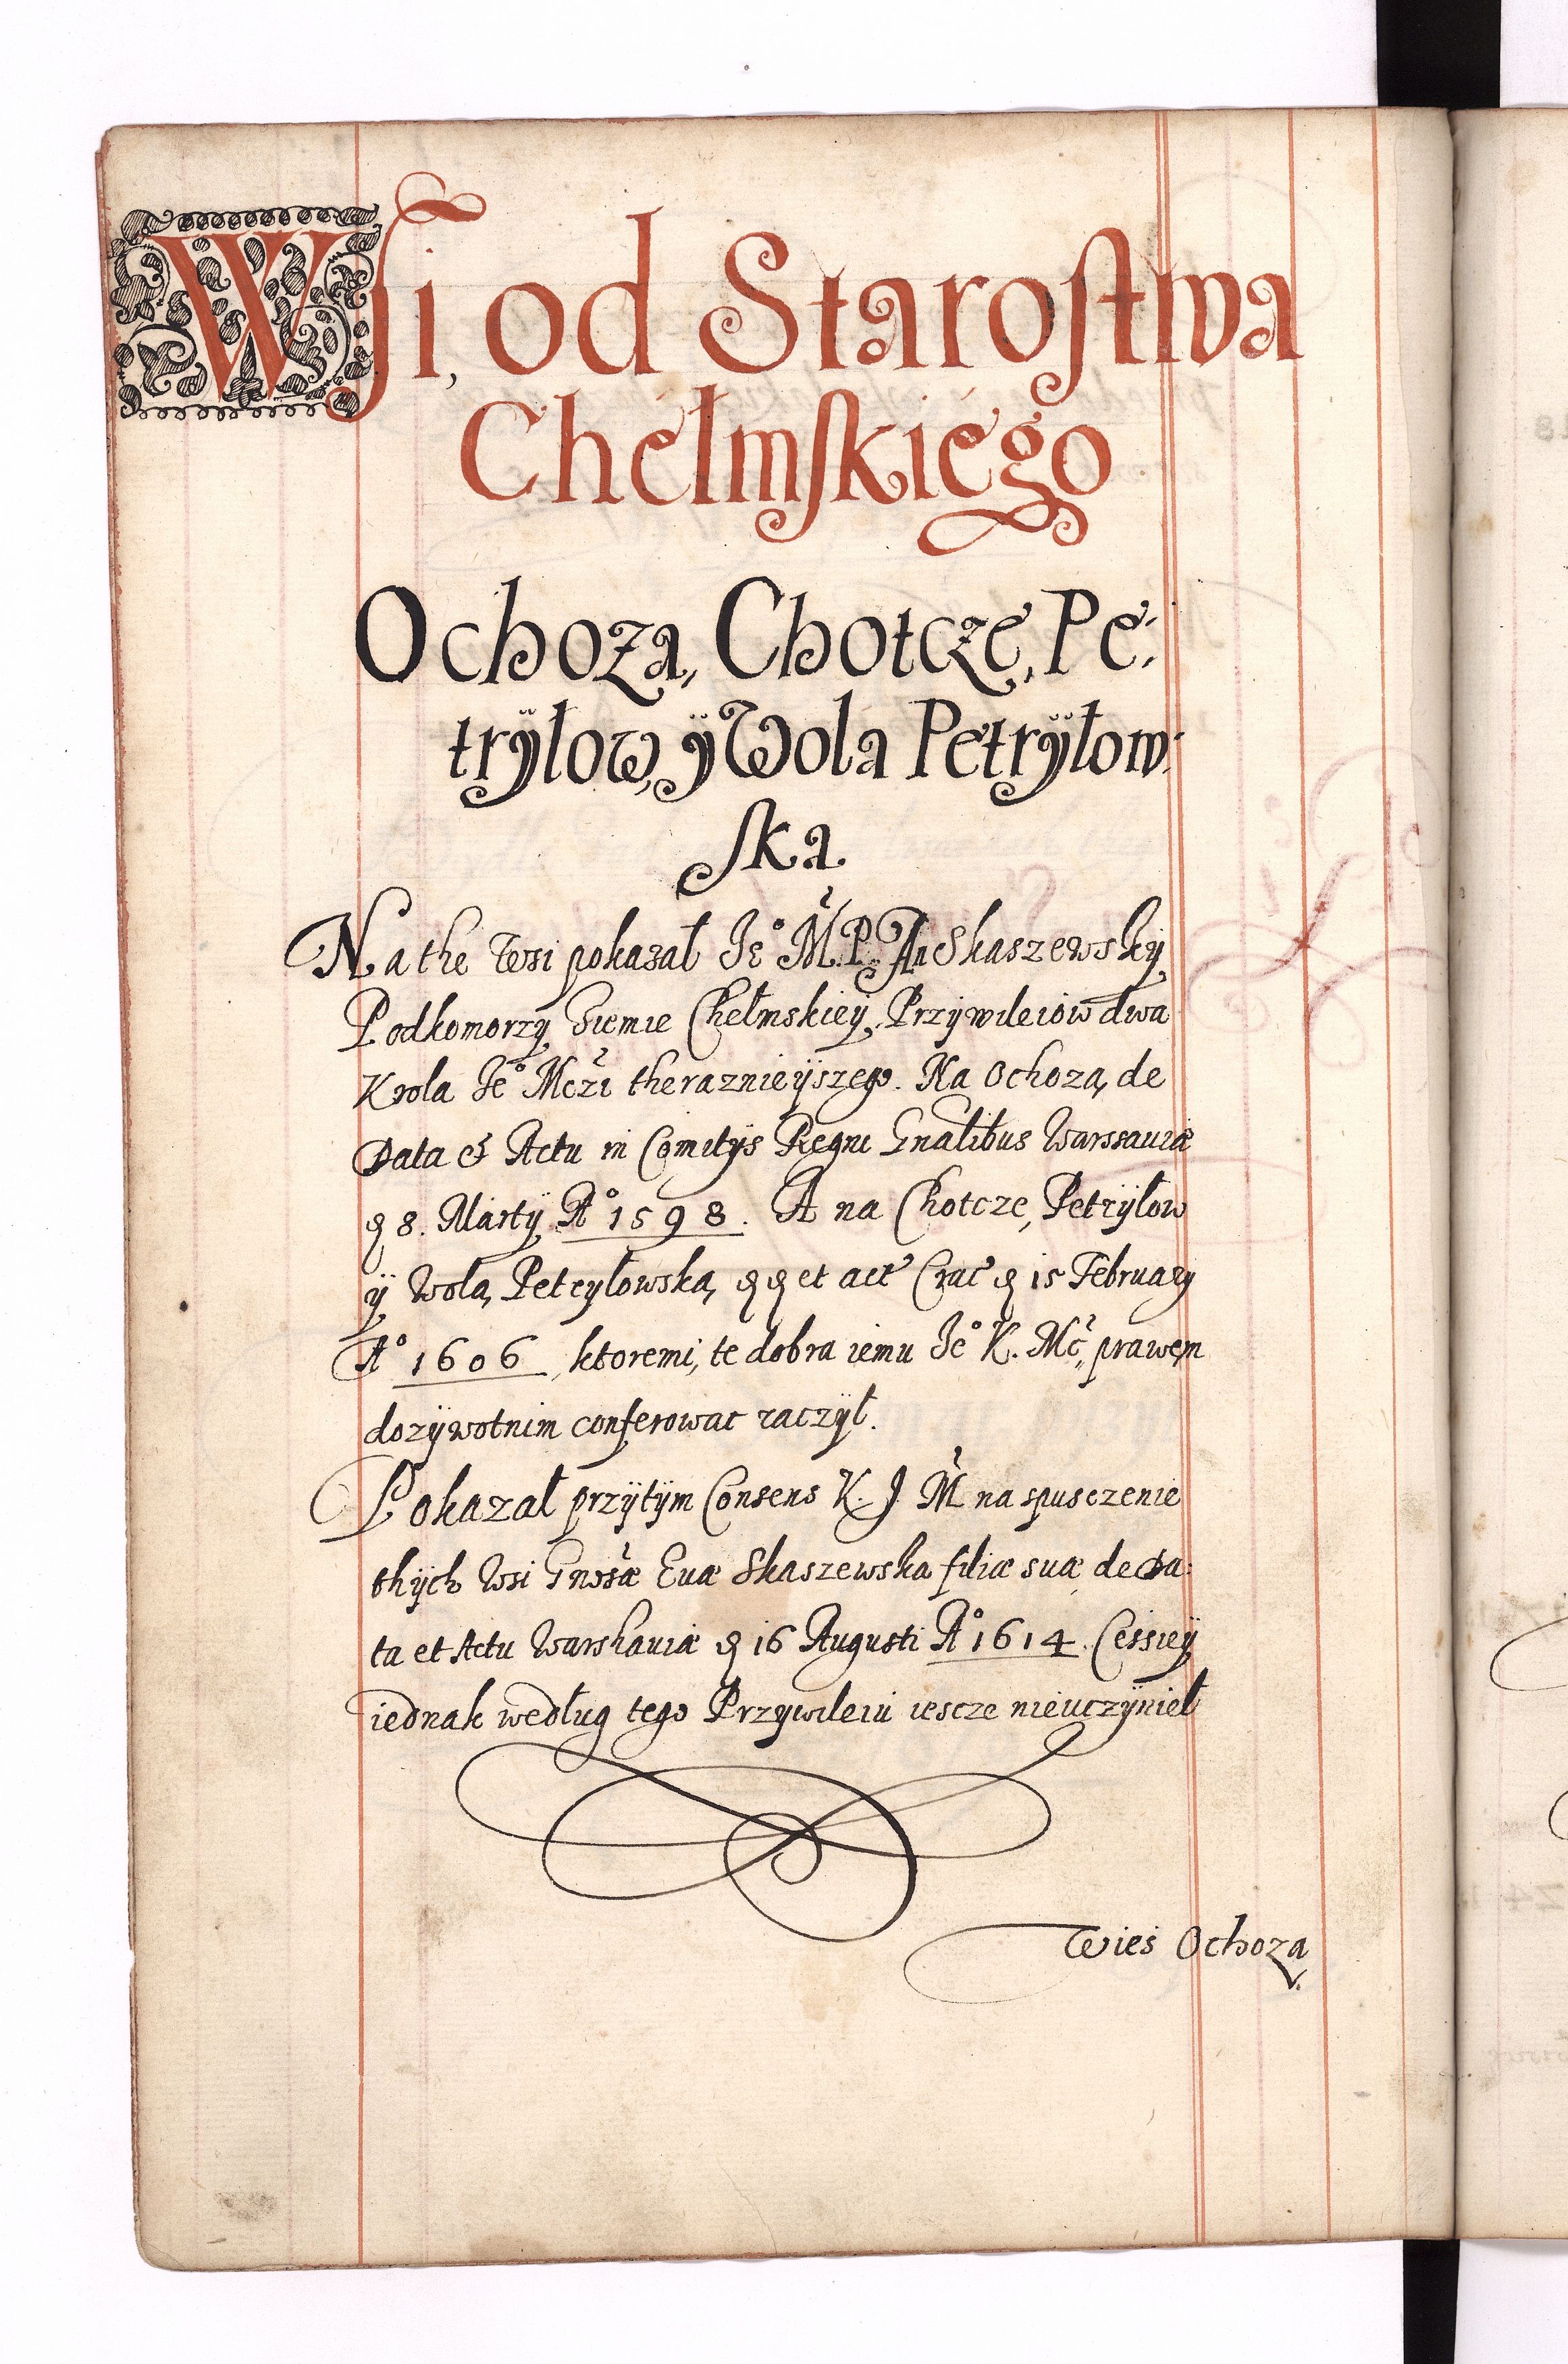 Wsi, od Starostwa
Chełmskiégo
Ochoza, Chotcze, Pe:
tryłow, ÿ Wola Petrÿłow:
ska.
Na the wsi pokazał Jeº M. P. An Skaszewskÿ
Podkomorzy Ziemie Chełmskiey, Przÿwileiow dwa
Krola Jeº Mczi theraznieÿszego. Na Ochoza, de
Data & Actu in Comitÿs Regni Gnalibus Warssauiæ
8. Martÿ Aº 1598. A na Chotcze, Petrÿłow
ÿ Wola, Petryłowska, et act Crac 15 February
Aº 1606, ktoremi, te dobra iemu Jeº K. Mć, prawem
dozÿwotnim conferowac raczÿł.
Pokazał przÿtÿm Consens K. J. M na spusczenie
thÿch Wsi Gnosæ Euæ Skaszewska filiæ suæ de Da:
ta et Actu Warshauiæ 16 Augusti Aº 1614. Cessieÿ
iednak według tego Przywileiu iescze nieuczÿnieł
Wies Ochoza